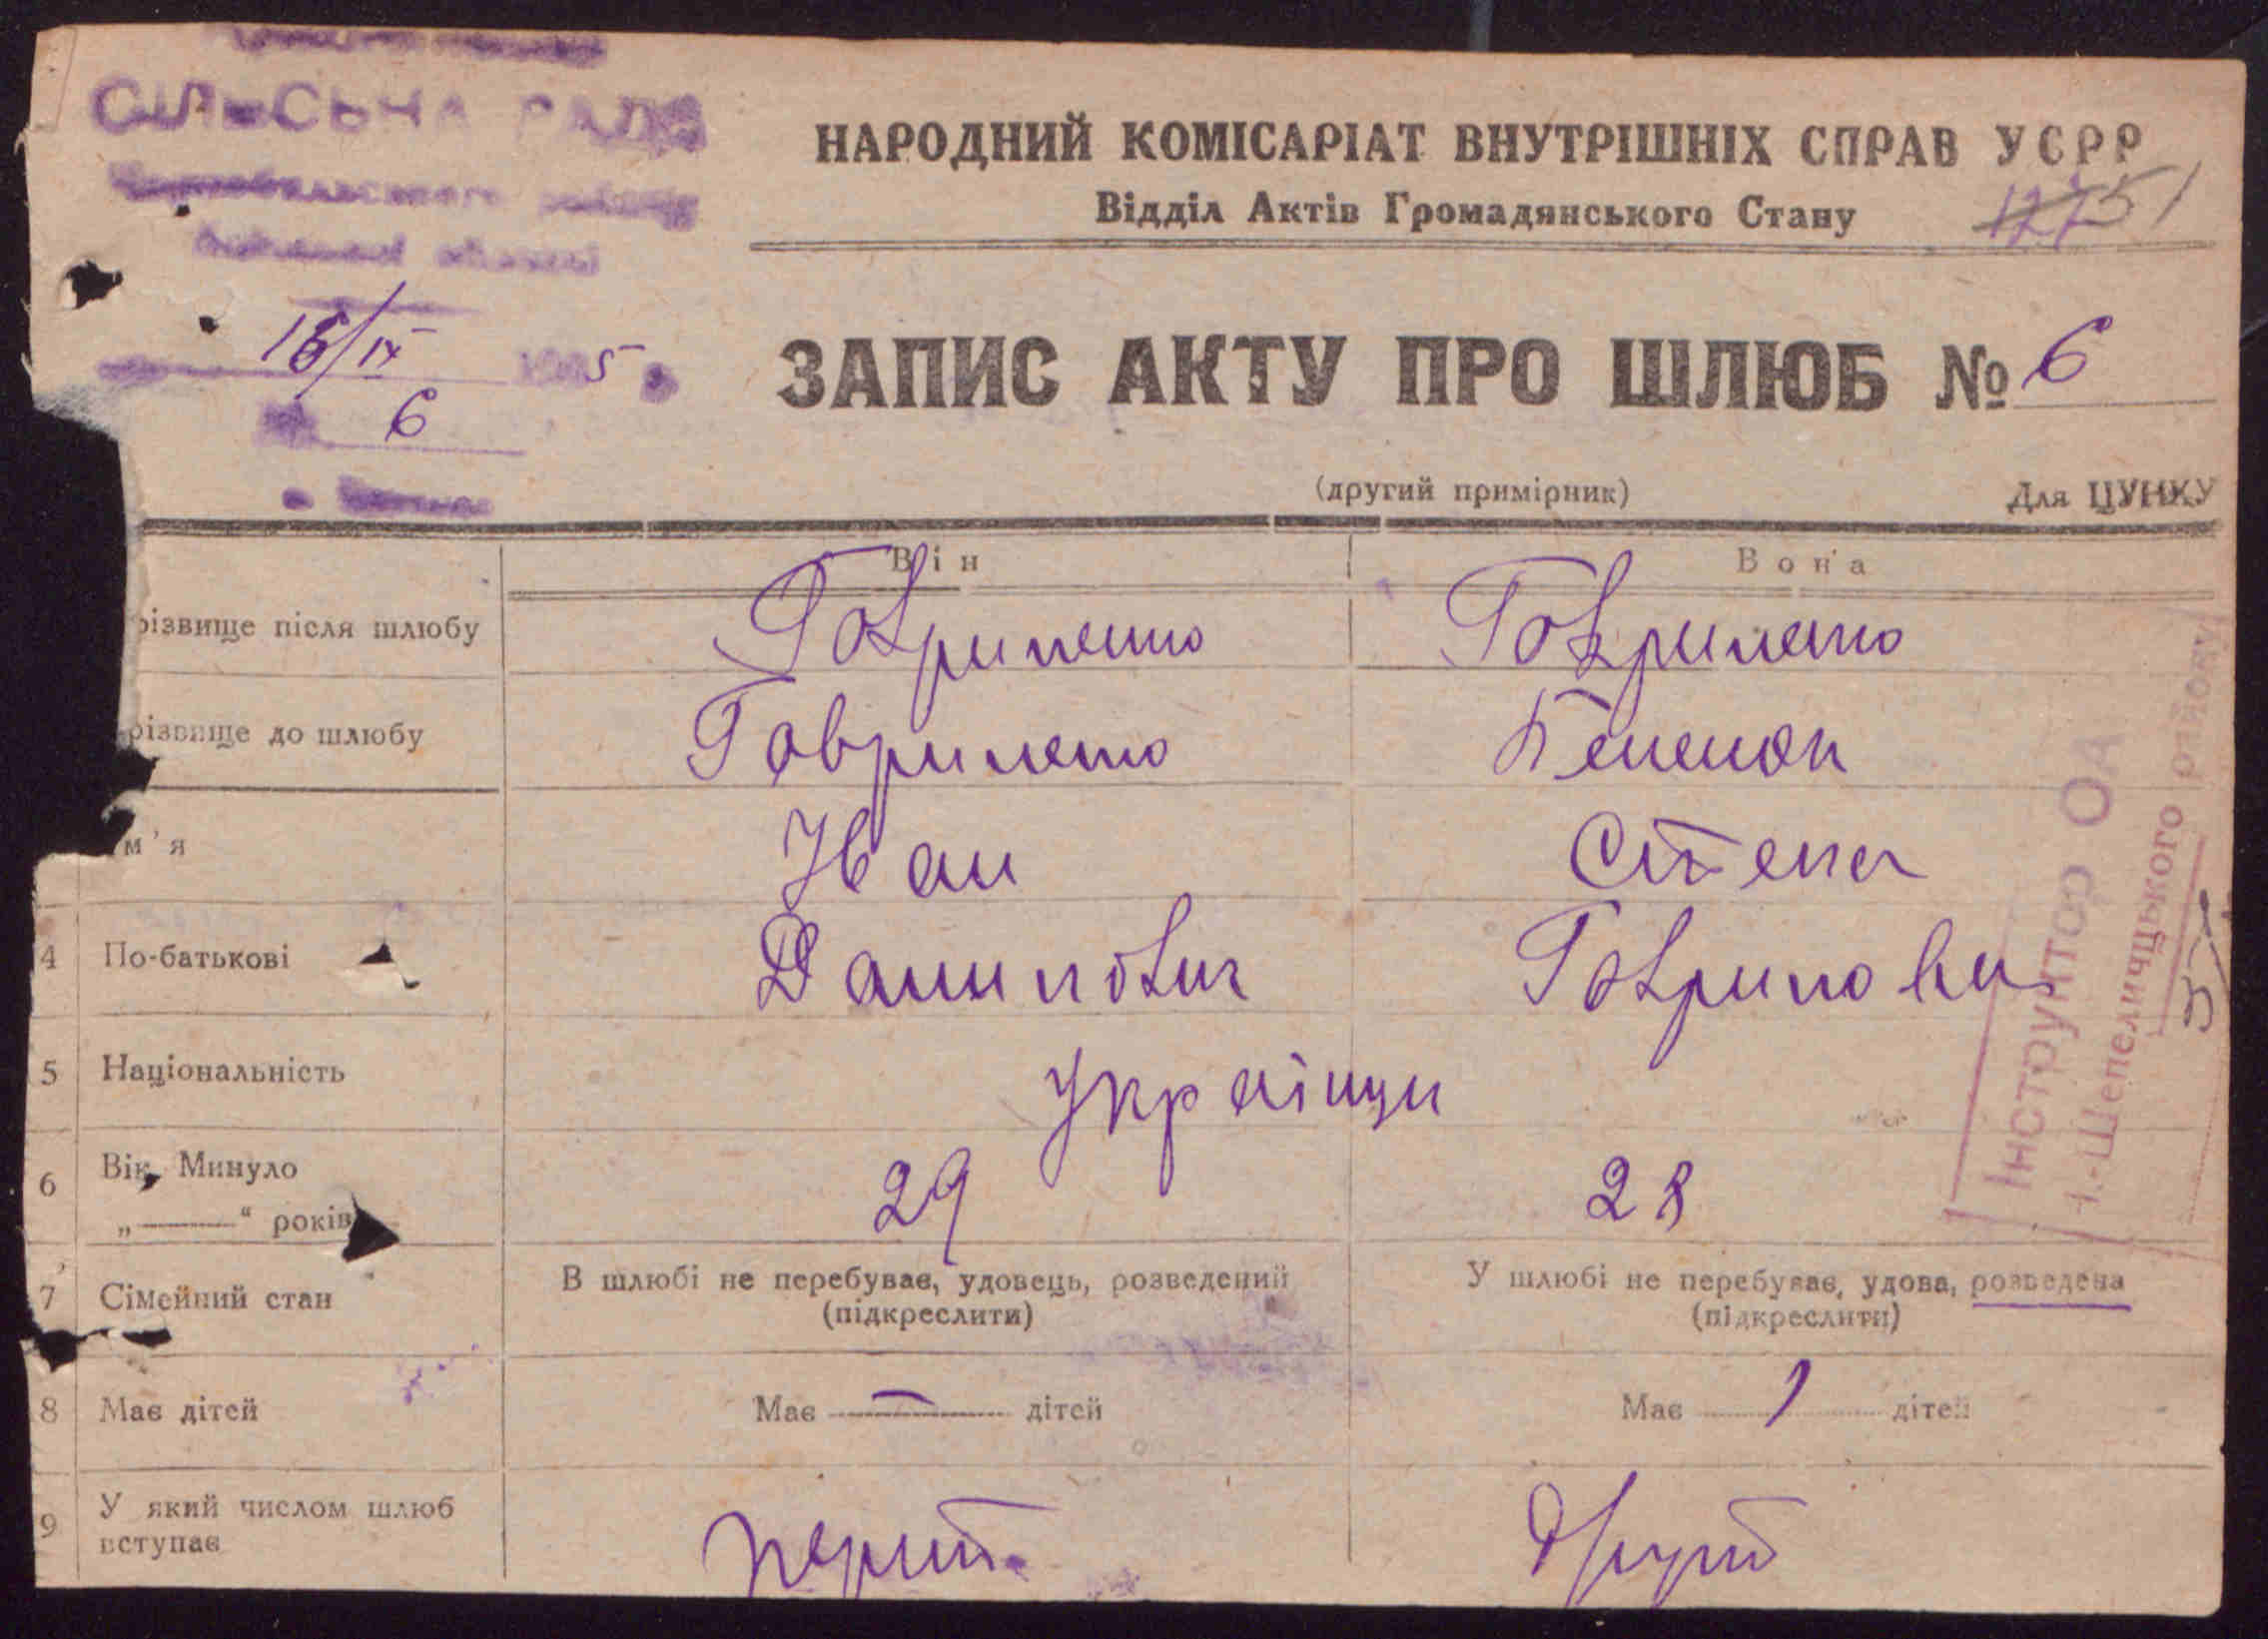 СІЛЬСЬКА РАДА
НАРОДНИЙ КОМІСАРІАТ ВНУТРІШНІХ СПРАВ УСРР
Відділ Актів Громадянського Стану
51
16/IV 5
6
ЗАПИС АКТУ ПРО ШЛЮБ № 6
(другий примірник)
Для ЦУНКУ
Він Вона
різвище після шлюбу Гавриленко Гавриленко
різвище до шлюбу Гавриленко
м'я Іван Степа
4 По-батькові Данилович Гаврилови
5 Національність Україньці
6 Вік, Минуло
„——“ років 29 28
7 Сімейний стан В шлюбі не перебуває, удовець, розведений У шлюбі не перебуває, удова, розведена
(підкреслити) (підкреслити)
8 Має дітей Має — дітей Має 1 дітей
9 У який числом шлюб
вступає перший другий
Інструктор ОА
Н.-Шепеличцького району